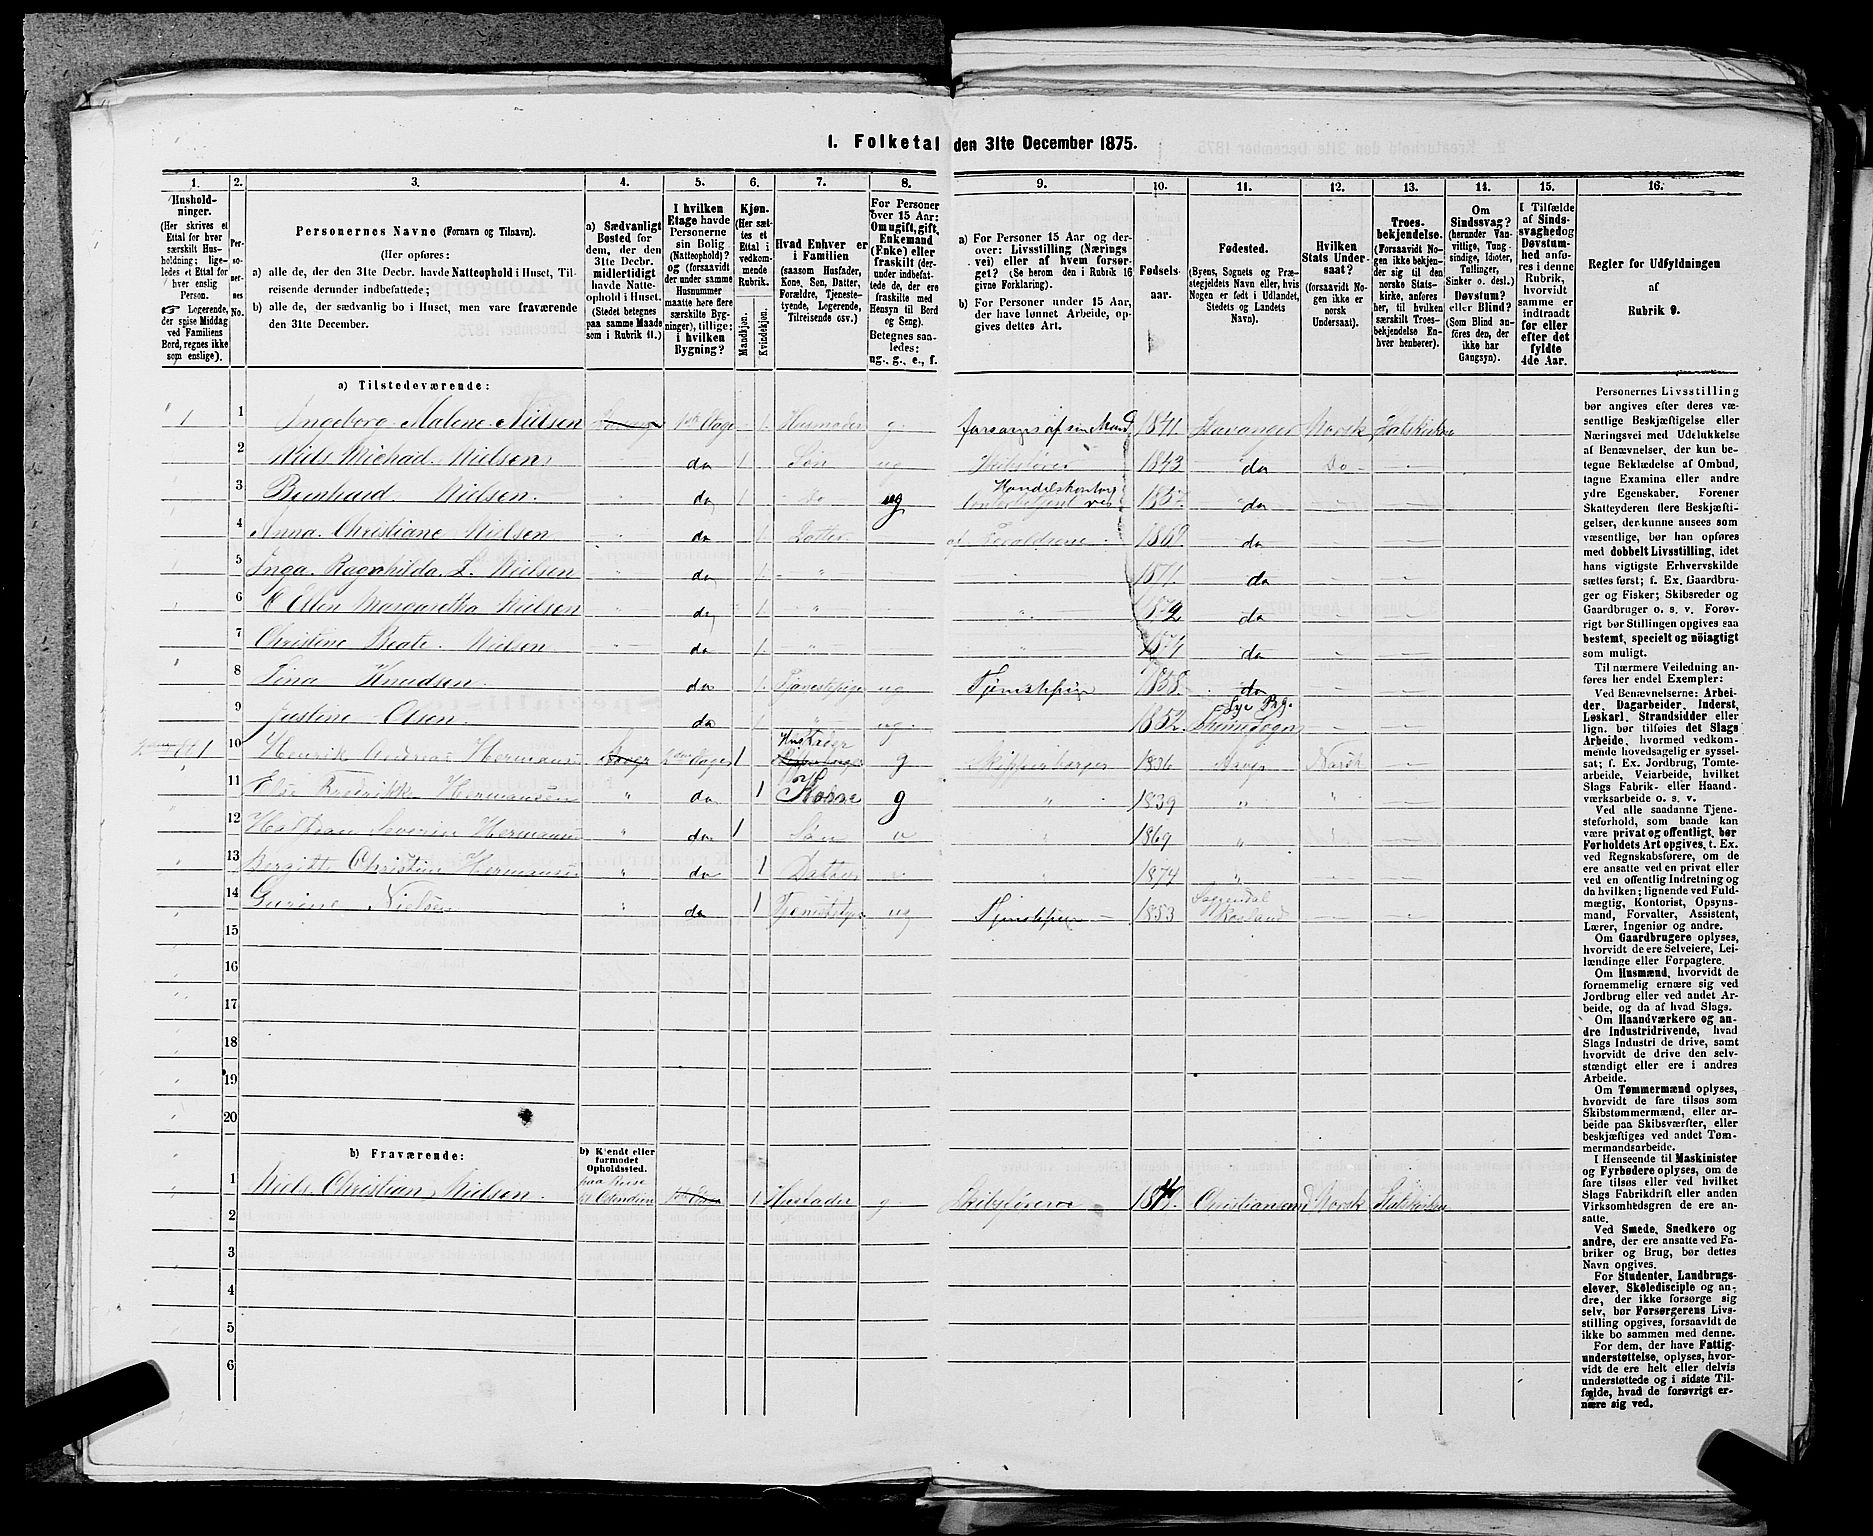 1. Folketal den 31te December 1875.
1. 2. 3. 4. 5. 6. 7. 8. 9. 10. 11. 12. 13. 14. 15. 16.
Hushold-
ninger.
(Her skrives et
Ettal for hver
særskilt Hus-
holdning; lige-
ledes et Ettal for
hver enslig
Person.
☞ Logerende,
der spise Middag
ved Familiens
Bord, regnes ikke
som enslige).
Per-
so-
ner-
nes
No.
Personernes Navne (Fornavn og Tilnavn).
(Her opføres:
a) alle de, der den 31te Decbr. havde Natteophold i Huset, Til-
reisende derunder indbefattede;
b) alle de, der sædvanlig bo i Huset, men vare fraværende
den 31te December.
a) Sædvanligt
Bosted for
dem, der den
31te Decbr.
midlertidigt
havde Natte-
ophold i Huset.
(Stedet betegnes
paa samme Maade
som i Rubrik 11.)
I hvilken
Etage havde
Personerne
sin Bolig
(Natteophold)?
og (forsaavidt
der under samme
Husnummer
maatte høre flere
særskilte Byg-
ninger), tillige:
i hvilken
Bygning?
Kjøn.
(Her sæt-
tes et
Ettal i
vedkom-
mende
Rubrik.
Mandkjøn.
Kvindekjøn.
Hvad Enhver er
i Familien
(saasom Husfader,
Kone, Søn, Datter,
Forældre, Tjeneste-
tyende, Logerende,
Tilreisende osv.)
For Personer
over 15 Aar:
Om ugift, gift,
Enkemand
(Enke) eller
fraskilt (der-
under indbefat-
tede de, der ere
fraskilte med
Hensyn til Bord
og Seng).
Betegnes saa-
ledes:
ug., g., e., f.
a) For Personer 15 Aar og der-
over: Livsstilling (Nærings
vei) eller af hvem forsør-
get? (Se herom den i Rubrik 16
givne Forklaring).
b) For Personer under 15 Aar,
der have lønnet Arbeide, op-
gives dettes Art.
Fødsels-
aar.
Fødested.
(Byens, Sognets og Præ-
stegjeldets Navn eller, hvis
Nogen er født i Udlandet,
Stedets og Landets
Navn).
Hvilken
Stats Under-
saat?
(forsaavidt No-
gen ikke er
norsk
Undersaat).
Troes-
bekjendelse.
(Forsaavidt No-
gen ikke bekjen-
der sig til den
norske Stats-
kirke, anføres
her, til hvilken
særskilt Troes-
bekjendelse En-
hver henhører).
Om
Sindssvag?
(herunder Van-
vittige, Tung-
sindige, Idioter,
Tullinger,
Sinker o. desl.)
Døvstum?
eller Blind?
(Som Blind an-
føres den, der
ikke har
Gangsyn).
I Tilfælde
af Sinds-
svaghed og
Døvstum-
hed anfø-
res i denne
Rubrik,
hvorvidt
samme er
indtraadt
før eller
efter det
fyldte
4de Aar.
Regler for Udfyldningen
af
Rubrik 9.
a) Tilstedeværende:
1 1 Ingeborg Malene Nielsen 1ste Etage 1 Husmoder g. forsørges af sin Mand 1841 Stavanger Norsk Statskirken
2 Nils Michael Nielsen do 1 Søn ug do Do
3 Bernhard Nielsen. do 1 Do ug Handelskontor do
4 Anna Christiane Nielsen do 1 Datter af Forældrene 1869 do
5 Inga Ragnhilda Nielsen do 1 " 1871 do
6 Margaretha Nielsen do 1 " 1872 do
7 Christine Beate Nielsen do 1 " do
8 Tina Knudsen do 1 Tjenestepige ug Tjenstepige 1858 do
9 Justine Olsen. do 1 " ug. 1852
1 10 Henrik Andreas Hermansen 1 Husfader g 1836 Norsk
11 Else Fredrikke Hermansen " do 1 Kone g " 1839 " "
12 Severin Hermansen " do 1 Søn 1869 "
13 Bergitte Christine Hermansen " do 1 Datter 1874 "
14 Gurine Nielsen " do 1 ug Tjenstepige 1853 Soggendal
15
16
17
18
19
20
b) Fraværende:
b) Kjendt eller
formodet
Opholdssted.
1 Niels Christian Nielsen. paa Reise til Ostendien 1 Husfader g Skibsfører Christiansand Norsk Statskirken
2
3
4
5
6
Personernes Livsstilling
bør angives efter deres væ-
sentlige Beskjæftigelse eller
Næringsvei med Udelukkelse
af Benævnelser, der kun be-
tegne Beklædelse af Ombud,
tagne Examina eller andre
ydre Egenskaber. Forener
Skatteyderen flere Beskjæfti-
gelser, der kunne ansees som
væsentlige, bør han opføres
med dobbelt Livsstilling, idet
hans vigtigste Erhvervskilde
sættes først; f. Ex. Gaardbru-
ger og Fisker; Skibsreder og
Gaardbruger o. s. v. Forøv-
rigt bør Stillingen opgives saa
bestemt, specielt og nöiagtigt
som muligt.
Til nærmere Veiledning an-
føres her endel Exempler:
Ved Benævnelserne: Arbei-
der, Dagarbeider, Inderst,
Løskarl, Strandsidder eller
lign. bør tilføies det Slags
Arbeide, hvormed vedkom-
mende hovedsagelig er syssel-
sat; f. Ex. Jordbrug, Tomte-
arbeide, Veiarbeide, hvilket
Slags Fabrik- eller Haand-
værksarbeide o. s. v.
Ved alle saadanne Tjene-
steforhold, som baade kan
være privat og offentligt, bør
Forholdets Art opgives, t. Ex.
ved Regnskabsførere, om de
ere ansatte ved en privat eller
ved en offentlig Indretning og
da hvilken; lignende ved Fuld-
mægtig, Kontorist, Opsyns-
mand, Forvalter, Assistent,
Lærer, Ingeniør og andre.
Om Gaardbrugere oplyses,
hvorvidt de ere Selveiere, Lei-
lændinge eller Forpagtere.
Om Husmænd, hvorvidt de
fornemmelig ernære sig ved
Jordbrug eller ved andet Ar-
beide, og da af hvad Slags.
Om Haandværkere og an-
dre Industridrivende, hvad
Slags Industri de drive, samt
hvorvidt de drive den selv-
stændigt eller ere i andres
Arbeide.
Om Tømmermænd oplyses,
hvorvidt de fare tilsøs som
Skibstømmermænd, eller ar-
beide paa Skibsværfter, eller
beskjæftiges ved andet Tøm-
mermandsarbeide.
I Henseende til Maskinister
og Fyrbødere oplyses, om de
fare tilsøs eller ved hvilket
Slags Fabrikdrift eller anden
Virksomhedsgren de ere an-
satte.
Ved Smede, Snedkere og
andre, der ere ansatte ved Fa-
briker og Brug, bør dettes
Navn opgives.
For Studenter, Landbrugs-
elever, Skoledisciple og an-
dre, der ikke forsørge sig
selv, bør Forsørgerens Livs-
stilling opgives, forsaavidt de
ikke bo sammen med denne.
For dem, der have Fattig-
understøttelse, oplyses, hvor-
vidt de ere helt eller delvis
understøttede og i sidste Til-
fælde, hvad de forøvrigt er-
nære sig ved.